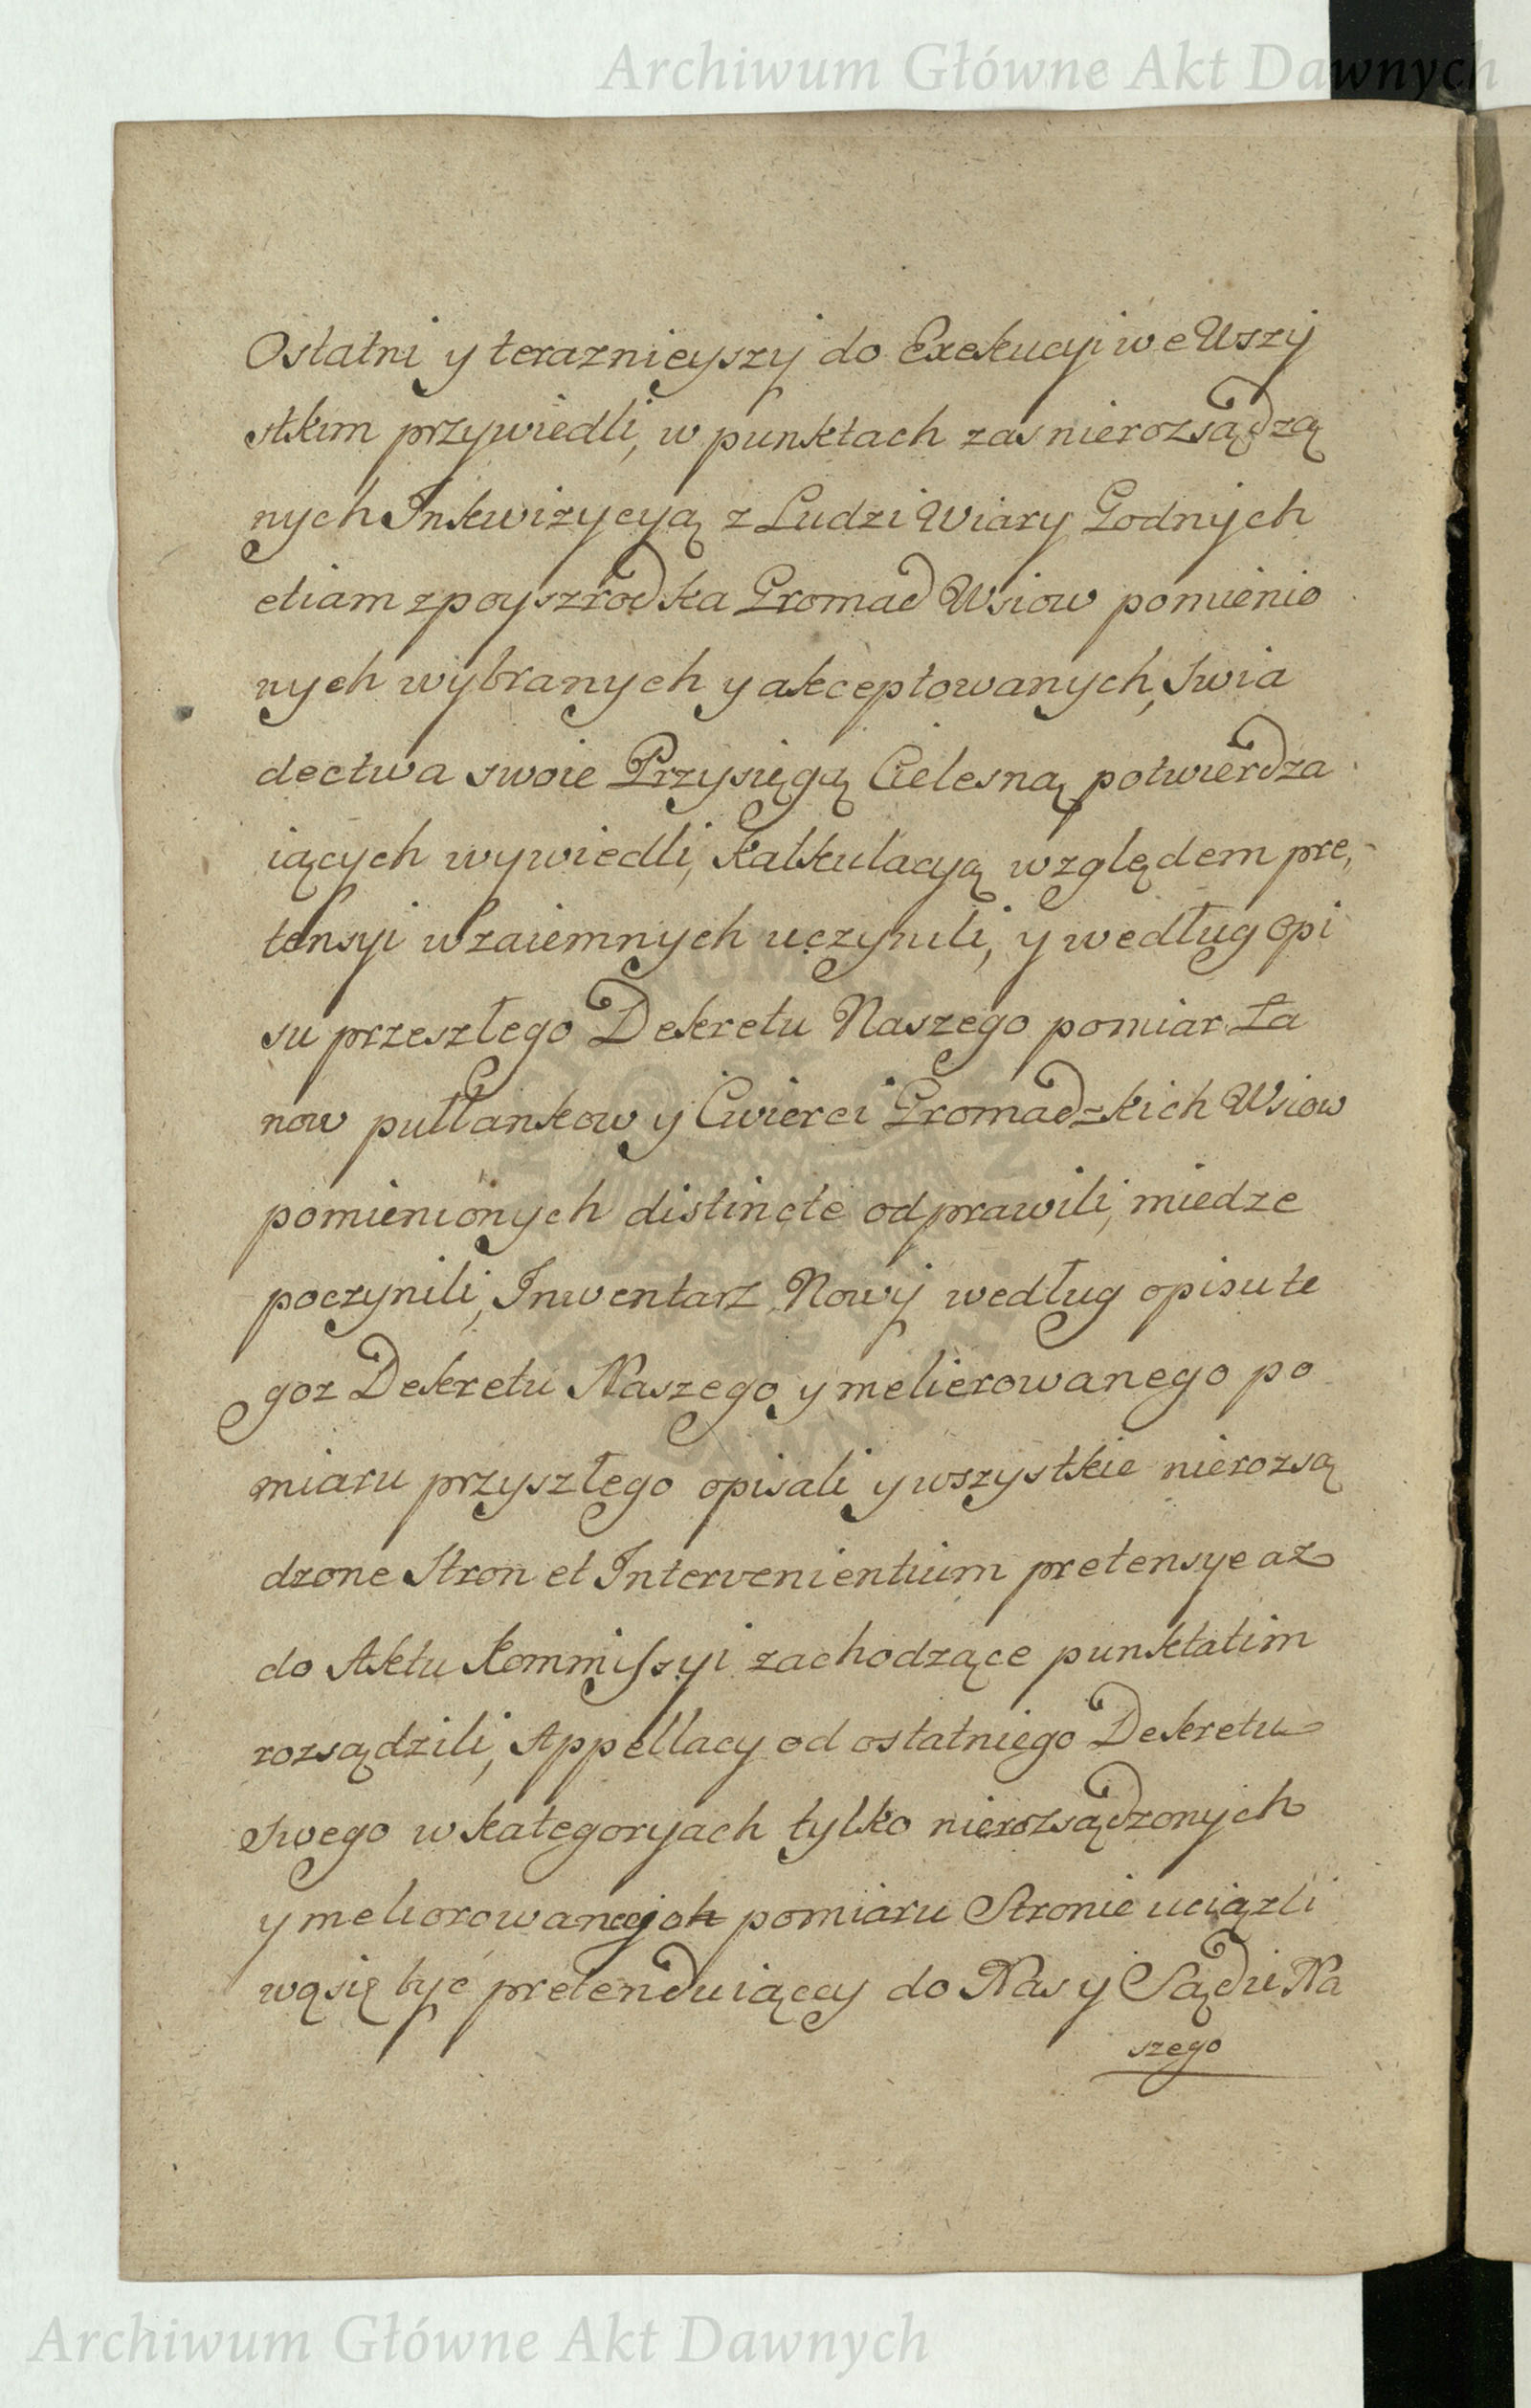 Archiwum Główne Akt Dawnych
Ostatni y teraznieyszy do Exekucyi we Wszy
stkim przywiedli, w punktach zas nierozsądzą
nych Inkwizycyą z Ludzi Wiary Godnych
etiam zpoyszrodka Gromad Wsiow pomienio
nych wybranych y akceptowanych, swia
dectwa swoie Przysięgą Cielesną potwierdza
iących wywiedli, kalkulacyą względem pre,
tensyi wzaiemnych uczynili, y według opi
su przeszłego Dekretu Naszego pomiar Ła
now pułłankow y Cwierci Gromadzkich Wsiow
pomienionych distincte odprawili, miedze
poczynili, Inwentarz Nowy według opisu te
goz Dekretu Naszego y melierowanego po
miaru przyszłego opisali y wszystkie nierozsą
dzone Stron et Intervenientium pretensye az
do Aktu kommissyi zachodzące punktatim
rozsądzili, Appellacy od ostatniego Dekretu
swego w kategoryach tylko nierozsądzonych
y meliorowanego pomiaru Stronie uciązli
wą się być pretenduiącey do Nas y Sądu Na
szego
Archiwum Główne Akt Dawnych